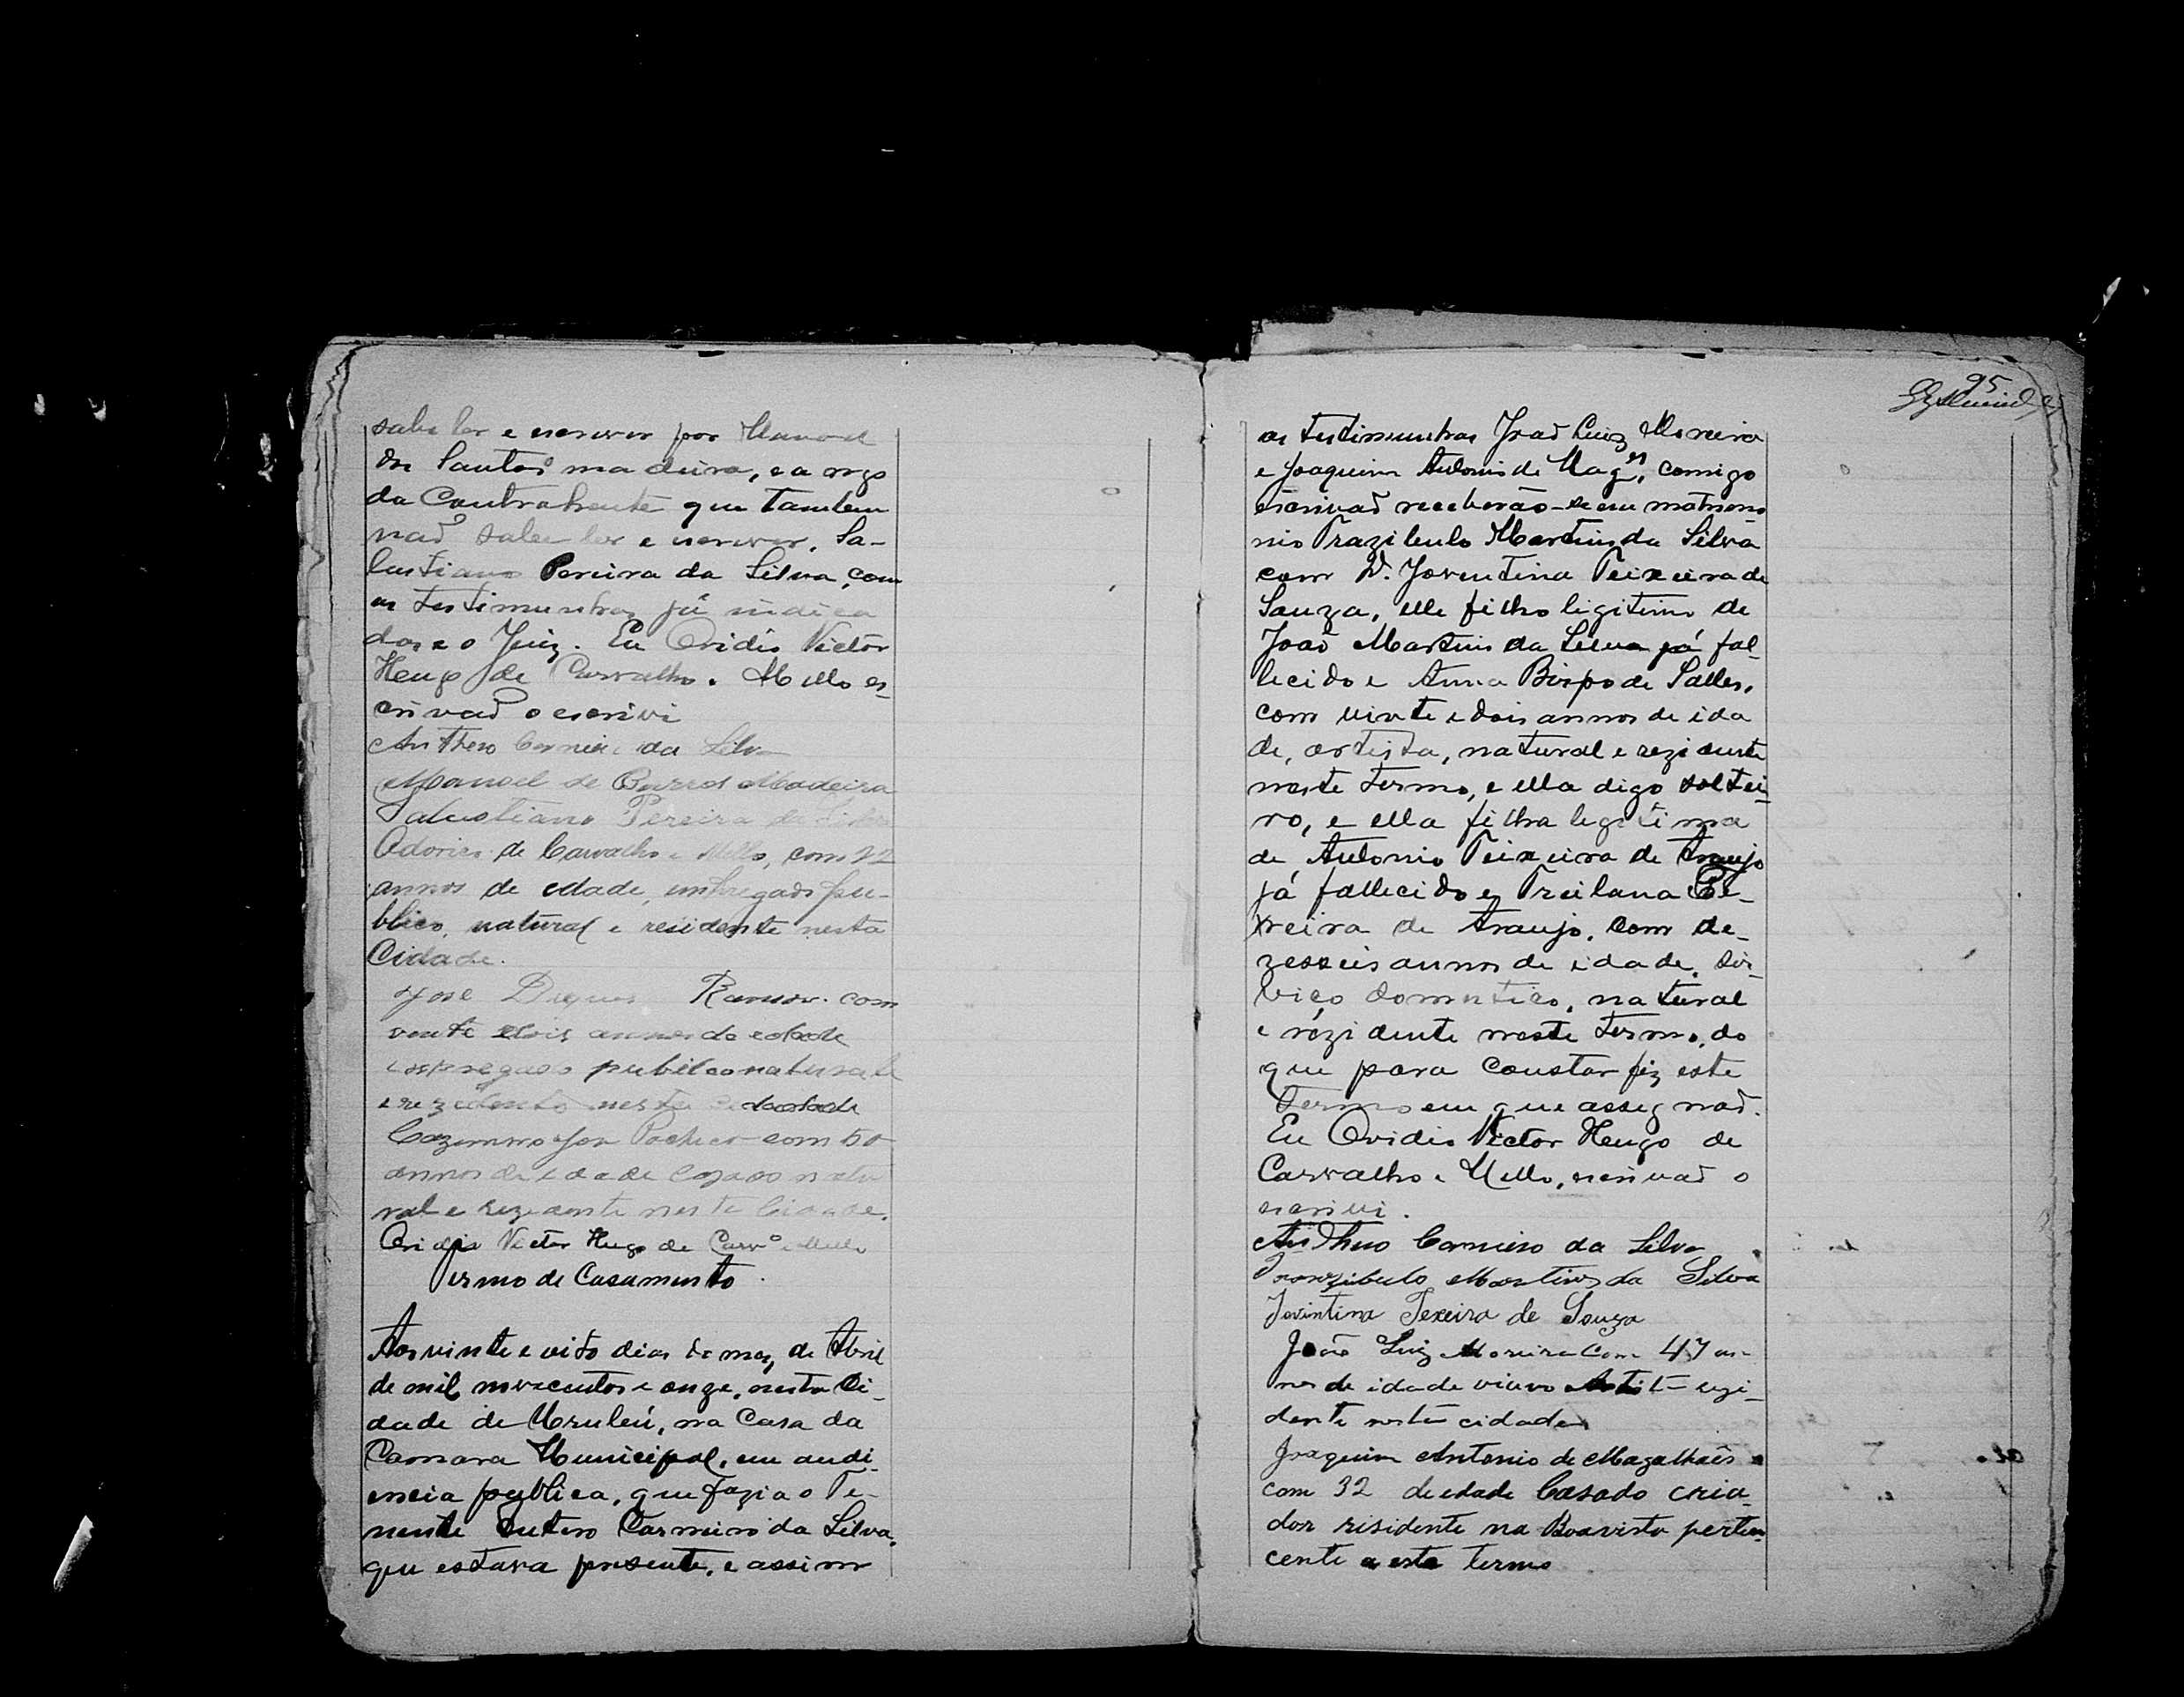 sabe ler e escrever por Manoel
dos Santos madeira, e a rogo
da Contrahente que tambem
naõ sabe ler e escrever, Sa-
lustiano Pereira da Silva, com
as testimunhas já indica
das e o Juiz. Eu Ovidio Victor
Hugo de Carvalho e Mello es-
crivaõ o escrivi
Anthero Carneiro da Silva
Manoel de Barros Madeira
Salustiano Pereira da Silva
Odorico de Carvalho e Mello, com 22
annos de edade, empregado pu-
blico, natural e residente nesta
Cidade.
José Ramos com
vente dois annos de edade
empregado publico natural
e rezidente nesta cidade
José Pacheco com 50
annos de idade cazado natu
ral e rezidente nesta Cidade.
Ovidio Victor Hugo de Carvº e Mello
Termo de Casamento
Aos vinte e oito dias do mez de Abril
de mil novecentos e onze, nesta Ci-
dade de Urubú, na Casa da
Camara Municipal, em audi-
encia publica, que fazia o Te-
nente Antero Carneiro da Silva,
que estava presente, e assim
95
as testimunhas Joaõ Luiz Moreira
e Joaquim Antonio de Mag.es, comigo
escrivaõ receberão-se em matrimo-
nio Trazibulo Martins da Silva
com D. Joventina Teixeira de
Souza, elle filho legitimo de
Joaõ Martins da Silva já fal-
lecido e Anna Bispo de Salles,
com vinte e dois annos de ida
de, artista, natural e rezidente
neste termo, e ella digo soltei-
ro, e ella filha legitima
de Antonio Teixeira de Araujo
já fallecido e Te-
xreira de Araujo, com de-
zesseis annos de idade, ser-
viço domestico, natural
e rezidente neste termo, do
que para constar fiz este
termo em que assignaõ.
Eu Ovidio Victor Hugo de
Carvalho e Mello, escrivaõ o
escrivi.
Anthero Carneiro da Silva
Tranzibulo Martins da Silva
Jovintina Texeira de Souza
João Luiz Moreira Com 47 an-
nos de idade viuvo Artista rezi-
dente nesta cidade
Joaquim Antonio de Magalhaẽs
com 32 de edade Casado cria-
dor risidente na Boavista perten-
cente a este termo